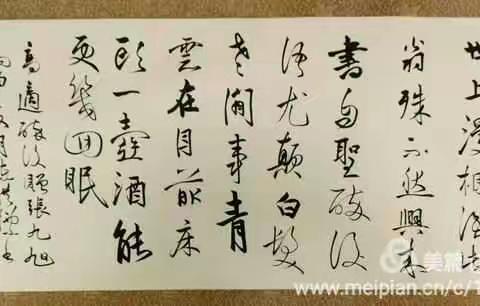 世上漫相识此
翁殊不然興来
書自聖醉後
语尤顛白髮
老闲事青
雲在目前床
头一壺酒能
更幾回眠
高適醉後贈張九旭
美篇
www.meipian.cn/c/1